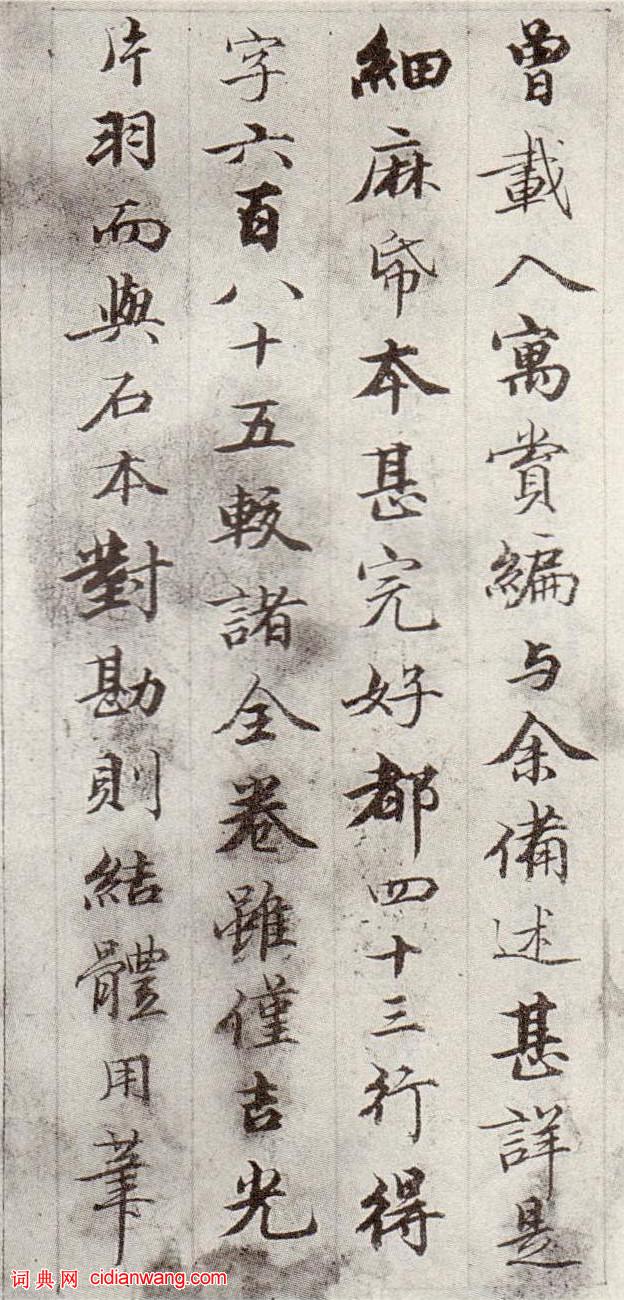 曾載入寓賞編与余備述甚詳是
細麻帋本甚完好都四十三行得
字六百八十五較諸全卷雖僅吉光
片羽而與石本對勘則結體用筆
词典网 cidianwang.com